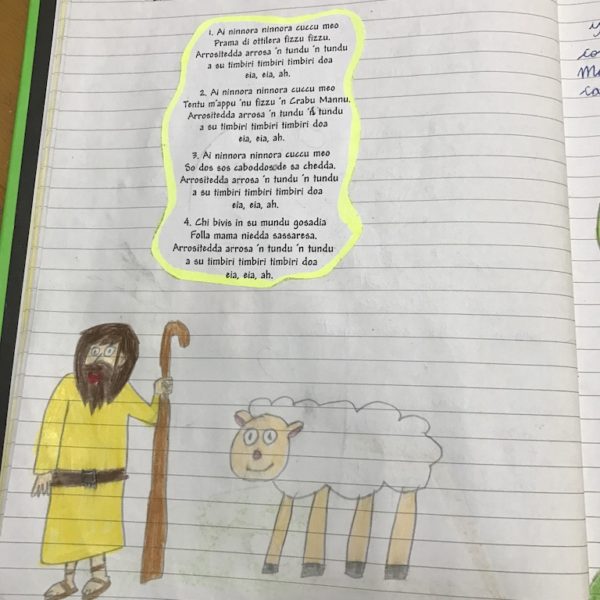 1. Ai ninnora ninnora cuccu meo
Prama di ottilera fizzu fizzu.
Arrositedda arrosa 'n tundu 'n tundu
a su timbiri timbiri timbiri doa
eia, eia, ah.
2. Ai ninnora ninnora cuccu meo
Tentu m'appu 'nu fizzu 'n Crabu Mannu.
Arrositedda arrosa 'n tundu 'n tundu
a su timbiri timbiri timbiri doa
eia, eia, ah.
3. Ai ninnora ninnora cuccu meo
So dos sos caboddos de sa chedda.
Arrositedda arrosa 'n tundu 'n tundu
a su timbiri timbiri timbiri doa
eia, eia, ah.
4. Chi bivis in su mundu gosadia
Folla mama niedda sassaresa.
Arrositedda arrosa 'n tundu 'n tundu
a su timbiri timbiri timbiri doa
eia, eia, ah.